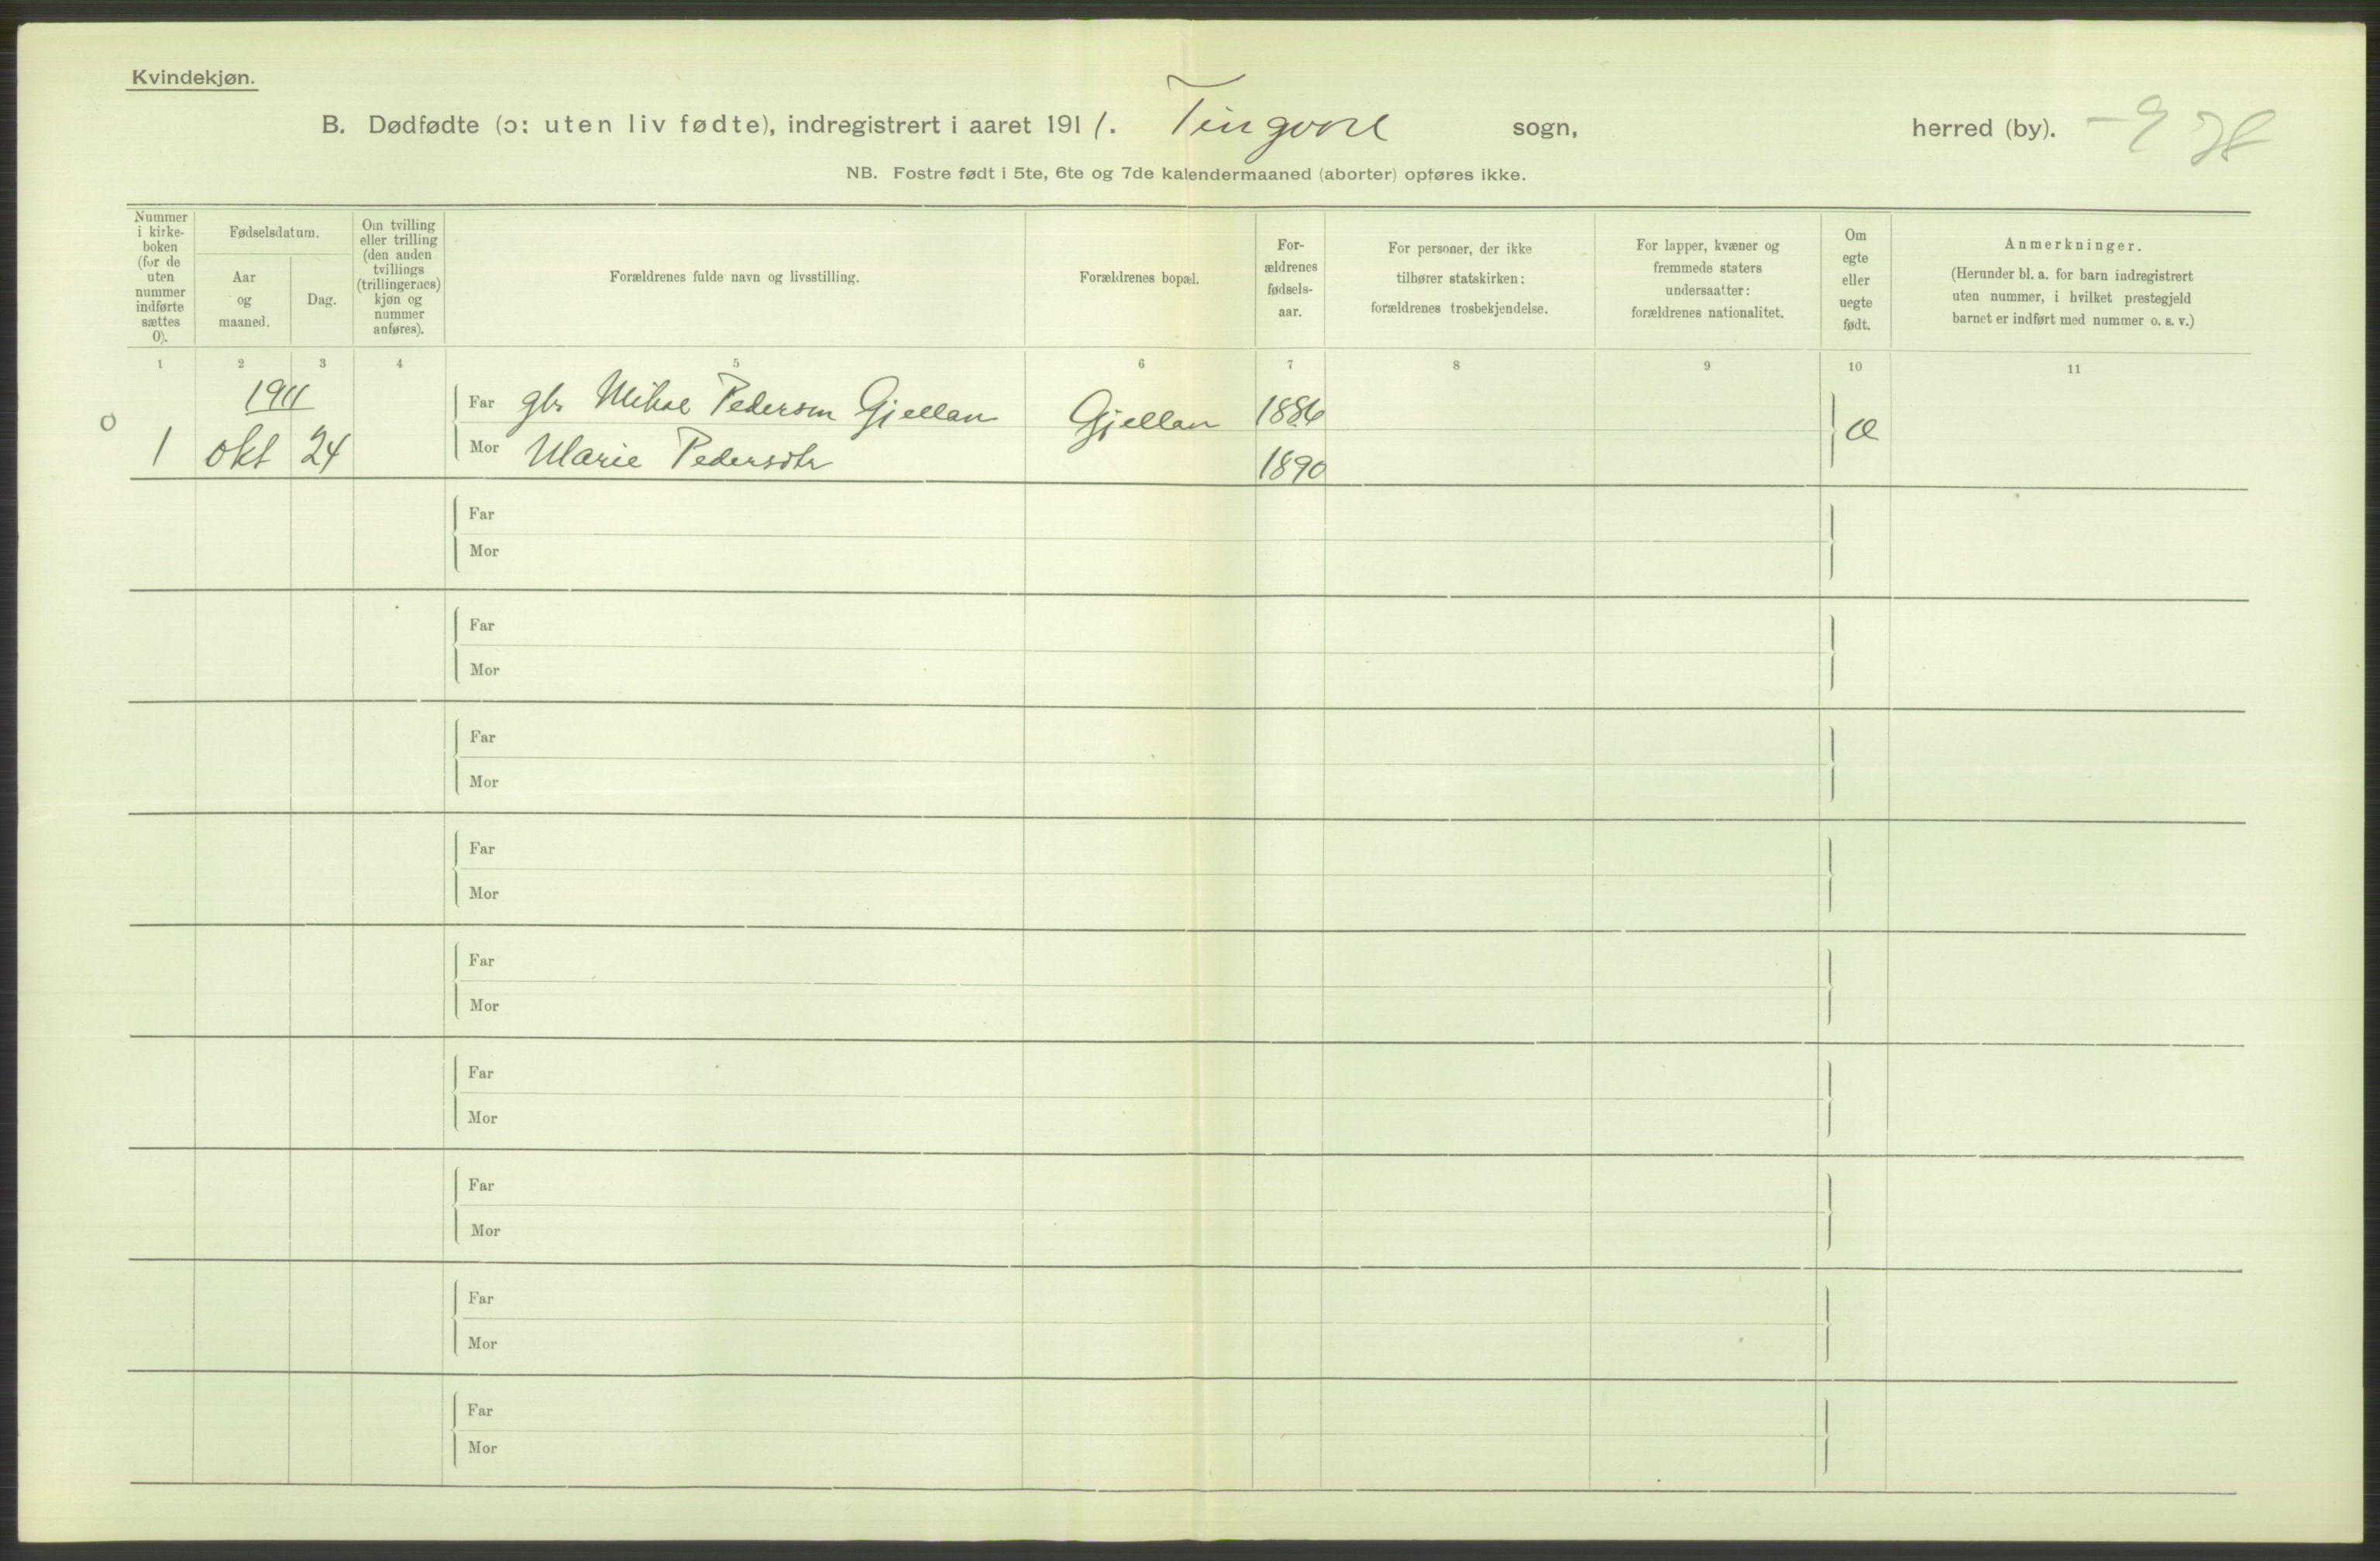 Kvindekjøn.
B. Dødfødte (ɔ: uten liv fødte), indregistrert i aaret 1911. Tingvoll sogn, herred (by).
NB. Fostre født i 5te, 6te og 7de kalendermaaned (aborter) opføres ikke.
Nummer i kirke-boken (for de uten nummer indførte sættes 0).
Fødselsdatum.
Aar og maaned.
Dag.
Om tvilling eller trilling (den anden tvillings (trillingernes) kjøn og nummer anføres).
Forældrenes fulde navn og livsstilling.
Forældrenes bopæl.
For-ældrenes fødsels-aar.
For personer, der ikke tilhører statskirken: forældrenes trosbekjendelse.
For lapper, kvæner og fremmede staters undersaatter: forældrenes nationalitet.
Om egte eller uegte født.
Anmerkninger.
(Herunder bl. a. for barn indregistrert uten nummer, i hvilket prestegjeld barnet er indført med nummer o. s. v.)
1 2 3 4 5 6 7 8 9 10 11
1911
0
Far gbr Mikal Pedersen Gjellan Gjellan 1886
1 okt 24 Mor Marie Pedersdtr 1890 Æ
Far
Mor
Far
Mor
Far
Mor
Far
Mor
Far
Mor
Far
Mor
Far
Mor
Far
Mor
Far
Mor